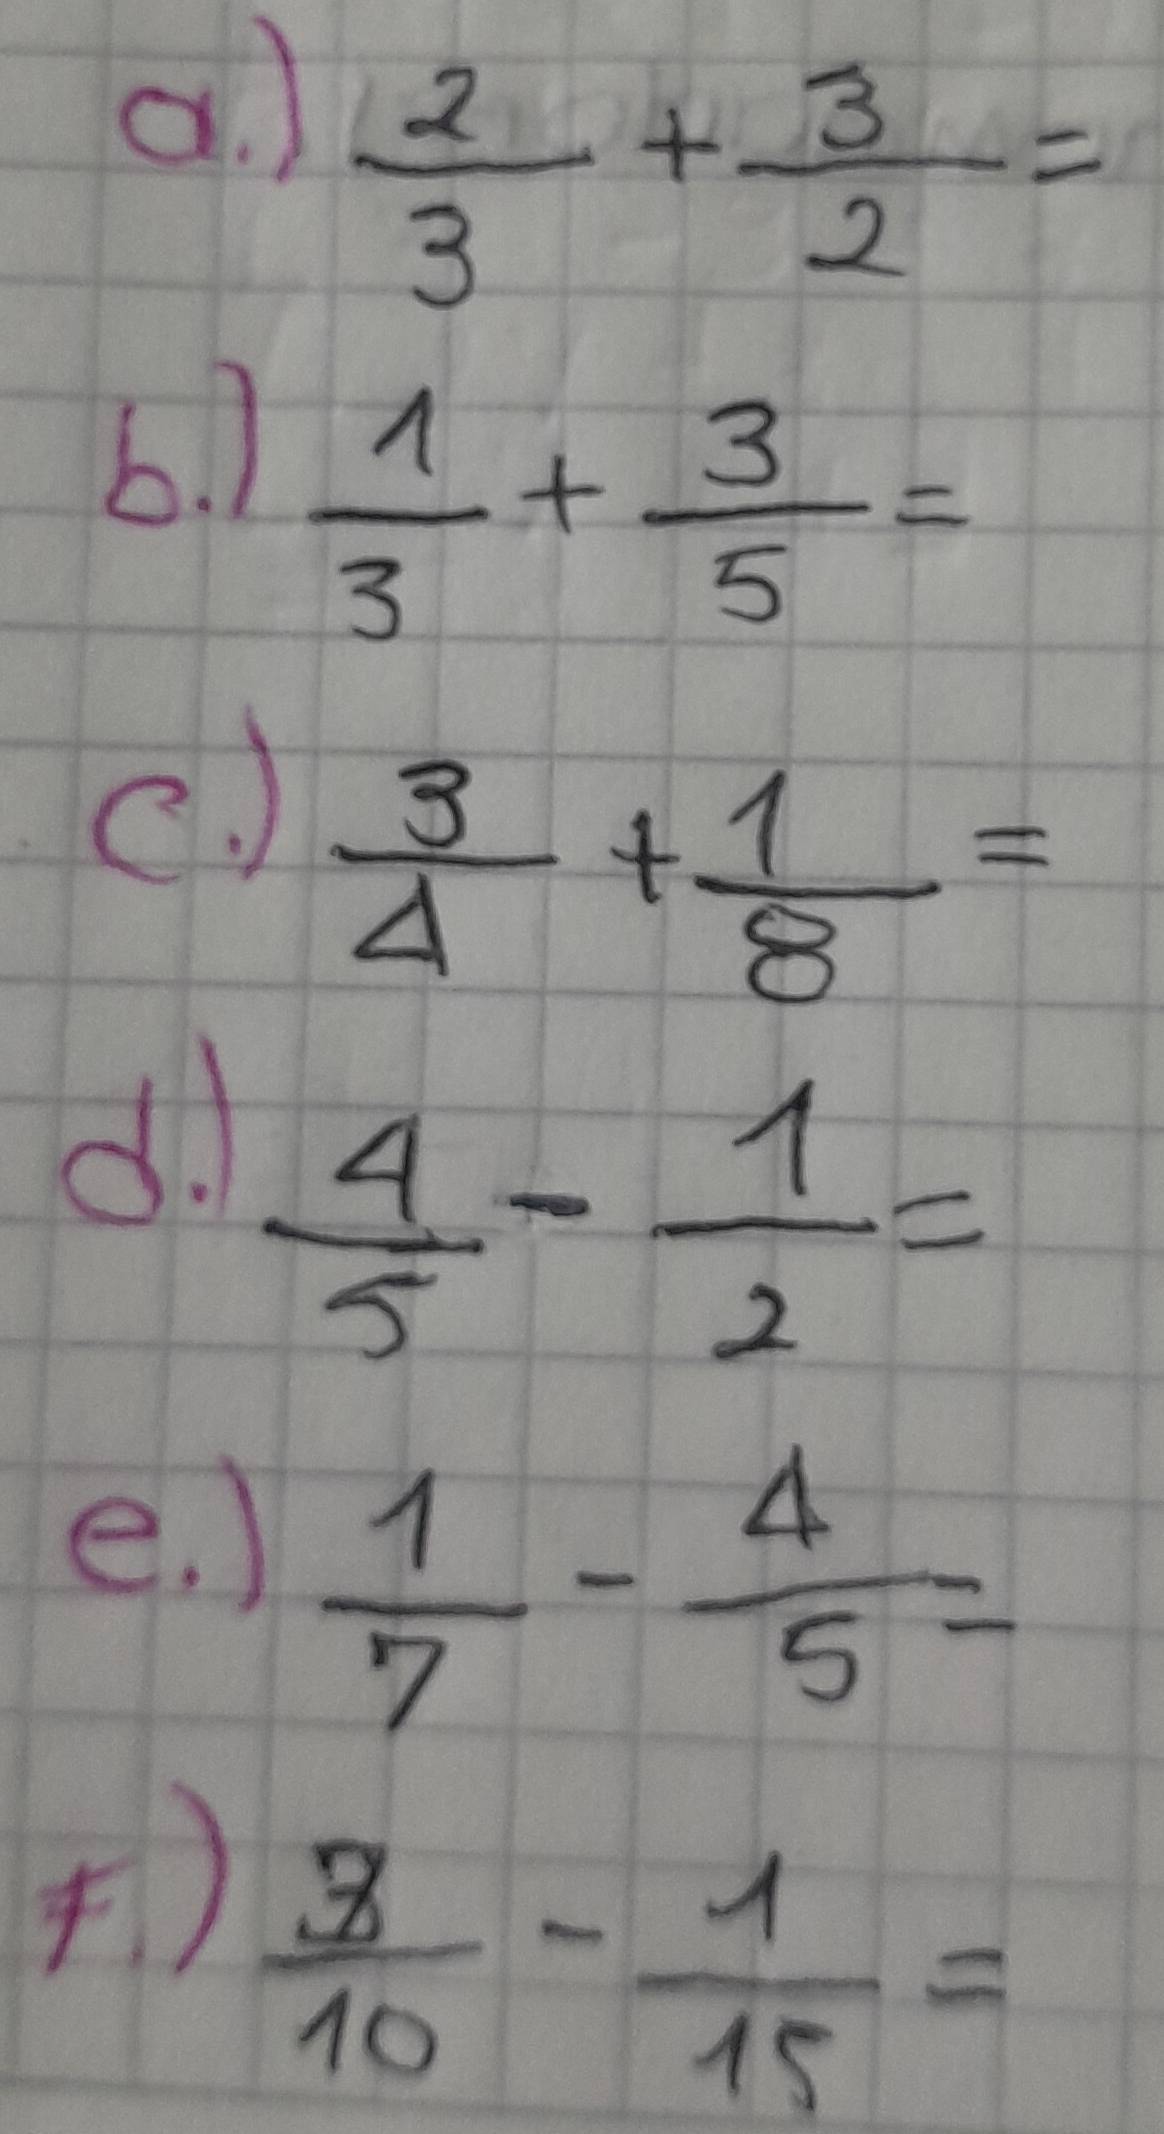 a.) 2/3 + 3/2 =
b.) 1/3 + 3/5 =
c.) 3/4 + 1/8 =
d.) 4/5 - 1/2 =
e.) 1/7 - 4/5 =
f.) /10 - 1/15 =